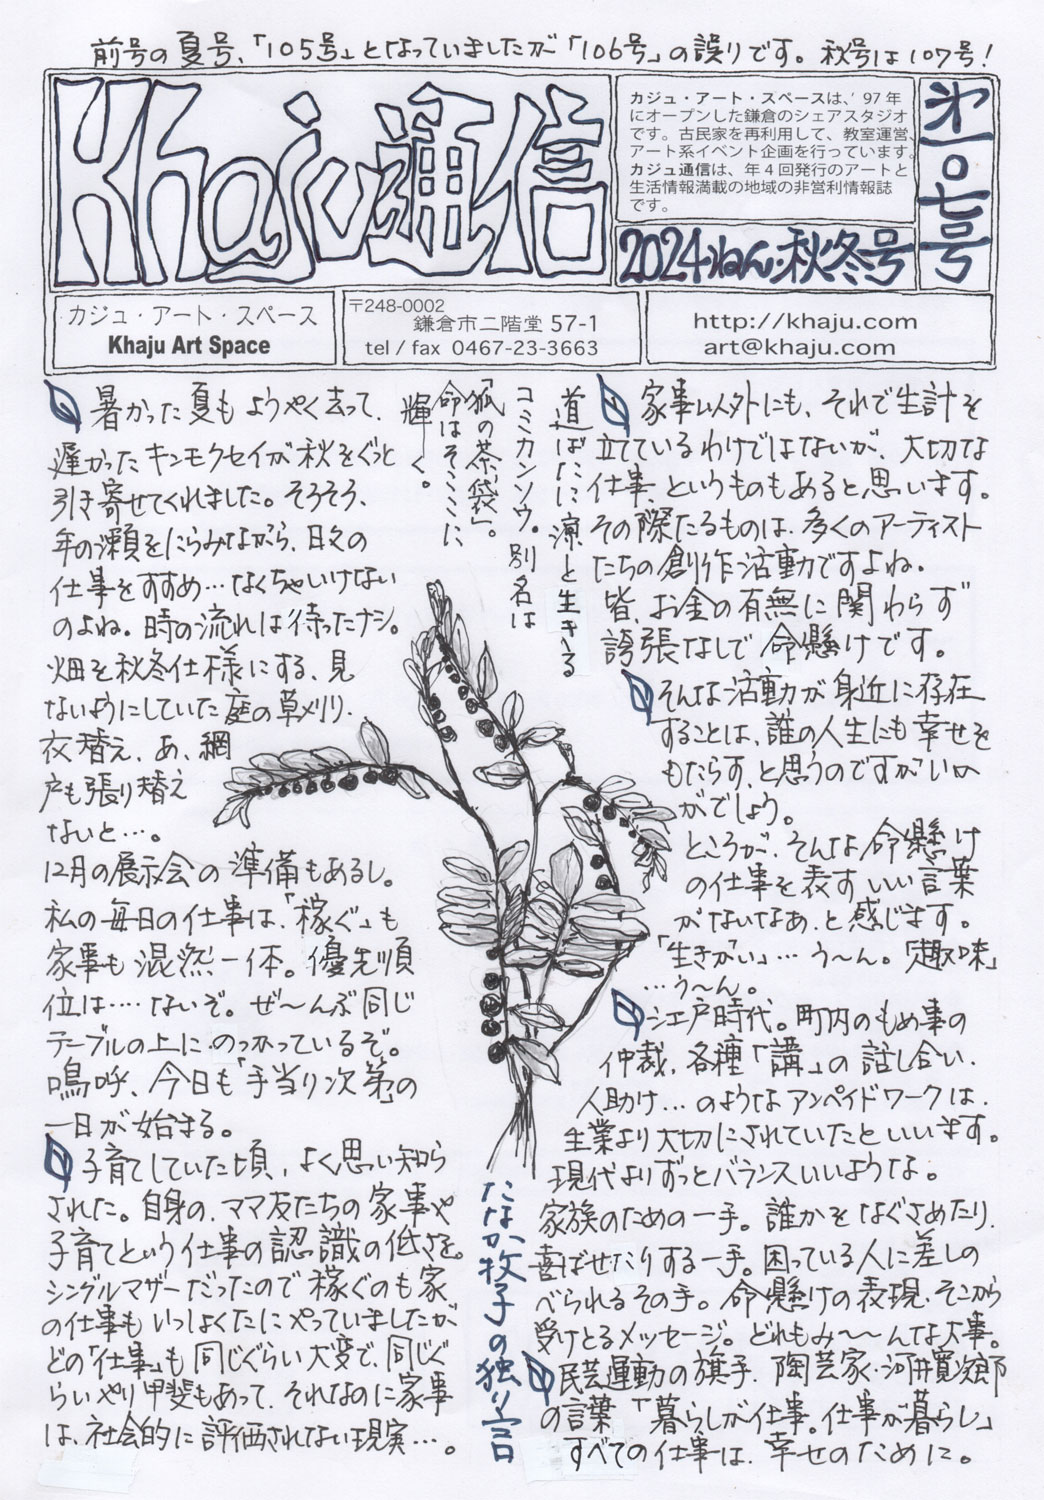 前号の夏号、「105号」となっていましたが「106号」の誤りです。秋号は107号！
Khaju通信
カジュ・アート・スペースは、'97年
にオープンした鎌倉のシェアスタジオ
です。古民家を再利用して、教室運営、
アート系イベント企画を行っています。
カジュ通信は、年4回発行のアートと
生活情報満載の地域の非営利情報誌
です。
2024ねん・秋冬号
第一〇七号
カジュ・アート・スペース
Khaju Art Space
〒248-0002
鎌倉市二階堂 57-1
tel / fax 0467-23-3663
http://khaju.com
art@khaju.com
暑かった夏もようやく去って、
遅かったキンモクセイが秋をぐっと
引き寄せてくれました。そろそろ、
年の瀬をにらみながら、日々の
仕事をすすめ…なくちゃいけない
のよね。時の流れは待ったナシ。
畑を秋冬仕様にする、見
ないようにしていた庭の草刈り、
衣替え、あ、網
戸も張り替え
ないと…。
12月の展示会の準備もあるし。
私の毎日の仕事は、「稼ぐ」も
家事も混然一体。優先順
位は‥‥ないぞ。ぜ〜んぶ同じ
テーブルの上にのっかっているぞ。
嗚呼、今日も「手当り次第」の
一日が始まる。
子育てしていた頃、よく思い知ら
された。自身の、ママ友たちの家事や
子育てという仕事の認識の低さを。
シングルマザーだったので稼ぐのも家
の仕事もいっしょくたにやっていましたが
どの「仕事」も同じぐらい大変で、同じぐ
らいやり甲斐もあって、それなのに家事
は、社会的に評価されない現実…。
道ばたに凛と生きる
コミカンソウ。別名は
「狐の茶袋」。
命はそこここに
輝く。
たなか牧子の独り言
家事以外にも、それで生計を
立てているわけではないが、大切な
仕事、というものもあると思います。
その際たるものは、多くのアーティスト
たちの創作活動ですよね。
皆、お金の有無に関わらず
誇張なしで命懸けです。
そんな活動が身近に存在
することは、誰の人生にも幸せを
もたらす、と思うのですがいか
がでしょう。
ところが、そんな命懸け
の仕事を表すいい言葉
がないなぁ、と感じます。
「生きがい」… う〜ん。「趣味」
…う〜ん。
江戸時代。町内のもめ事の
仲裁、各種「講」の話し合い、
人助け…のようなアンペイドワークは、
生業より大切にされていたといいます。
現代よりずっとバランスいいような。
家族のための一手。誰かをなぐさめたり、
喜ばせたりする一手。困っている人に差しの
べられるその手。命懸けの表現、そこから
受けとるメッセージ。どれもみ〜〜んな大事。
民芸運動の旗手、陶芸家・河井寛次郎
の言葉「暮らしが仕事。仕事が暮らし」
すべての仕事は、幸せのために。